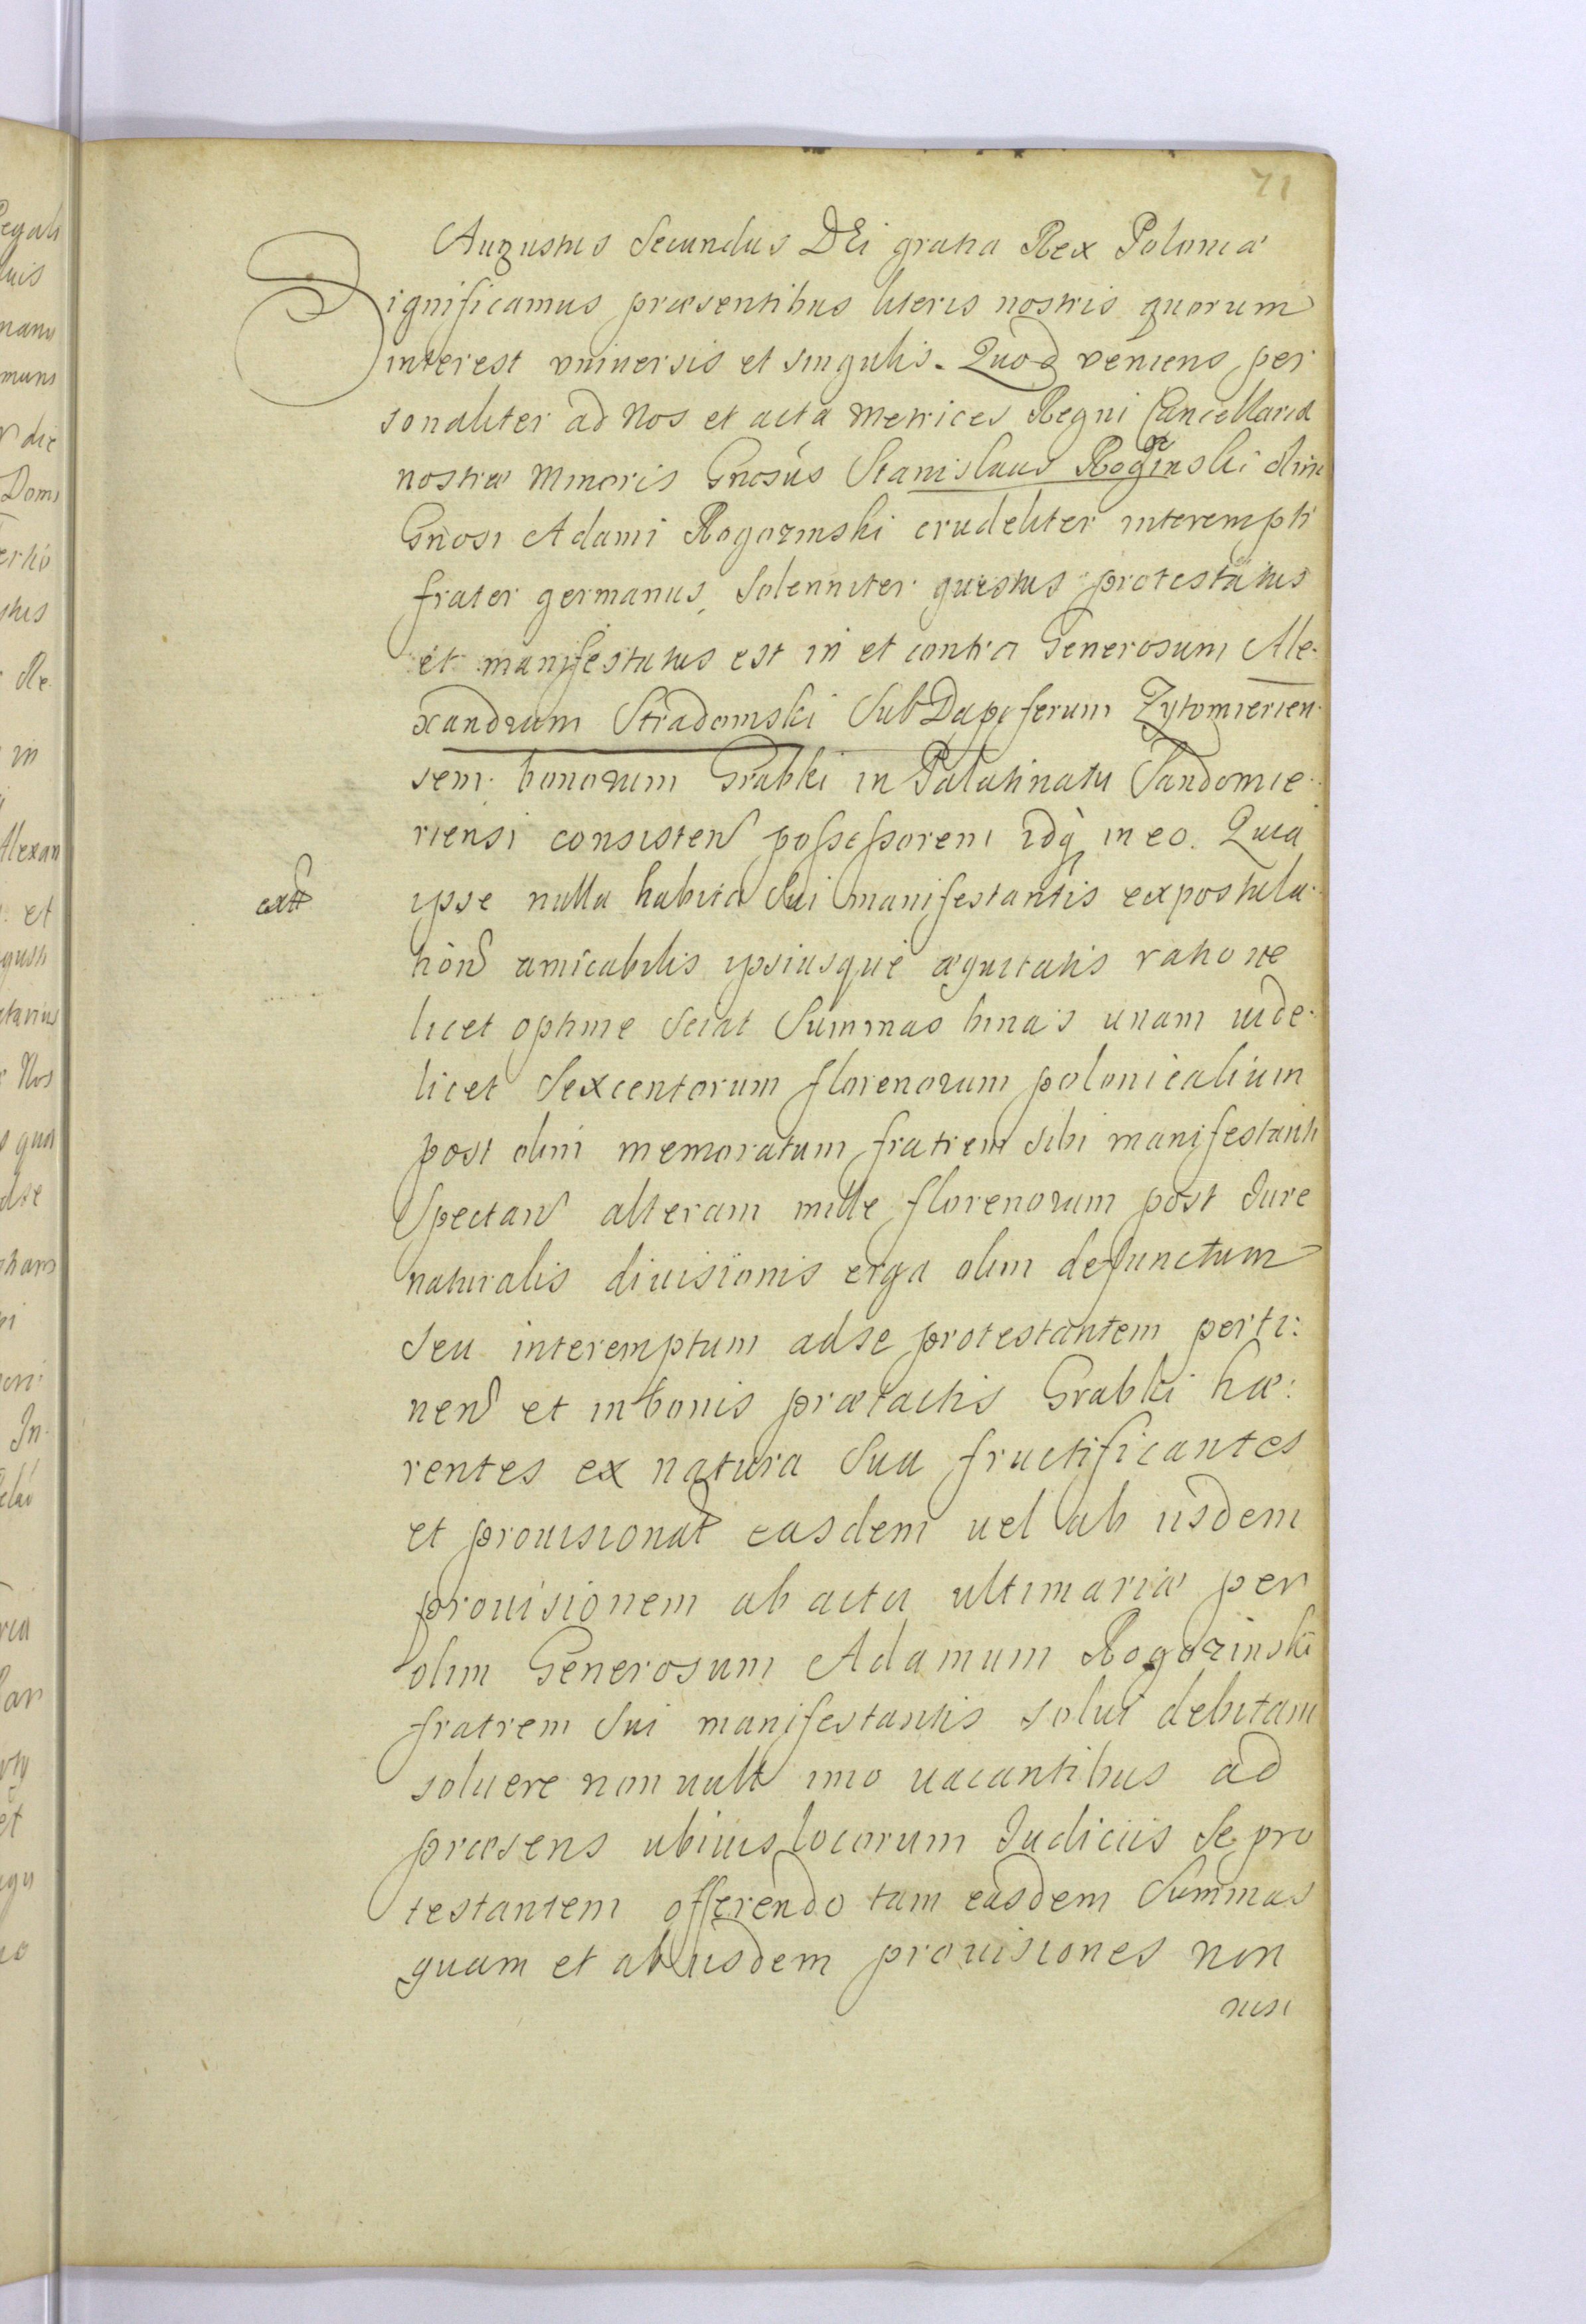 71
Augustus Secundus DEi gratia Rex Poloniæ
Significamus præsentibus literis nostris quorum
interest vniuersis et singulis. Quod veniens per
sonaliter ad Nos et acta Metrices Regni Cancellariæ
nostræ Minoris Gnosus Stanislaus Rogozinski olim
Gnosi Adami Rogozinski crudeliter interempti
frater germanus, Solenniter questus protestatus
et manifestatus est in et contra Generosum Ale.
xandrum Stradomski SubDapiferum Zytomierien.
sem. bonorum Grabki in Palatinatu Sandomie.
riensi consisten possessorem idq in eo. Quia
extt
ipse nulla habita Sui manifestantis expostula.
tion amicabilis ipsiusque æquitatis ratione
licet optime Sciat Summas binas unam uide.
licet Sexcentorum florenorum polonicalium
post olim memoratum fratrem sibi manifestanti
Spectan alteram mille florenorum post Jure
naturalis diuisionis erga olim defunctum
Seu interemptum adse protestantem perti:
nen et in bonis prætactis Grabki hæ:
rentes ex natura Sua fructificantes
et prouisionat easdem uel ab iisdem
prouisionem ab actu ultimariæ per
olim Generosum Adamum Rogozinski
fratrem Sui manifestantis solut debitam
soluere non uult imo uacantibus ad
præsens ubiuis locorum Judiciis Se pro
testantem offerendo tam easdem Summas
quam et ab iisdem prouisiones non
nisi